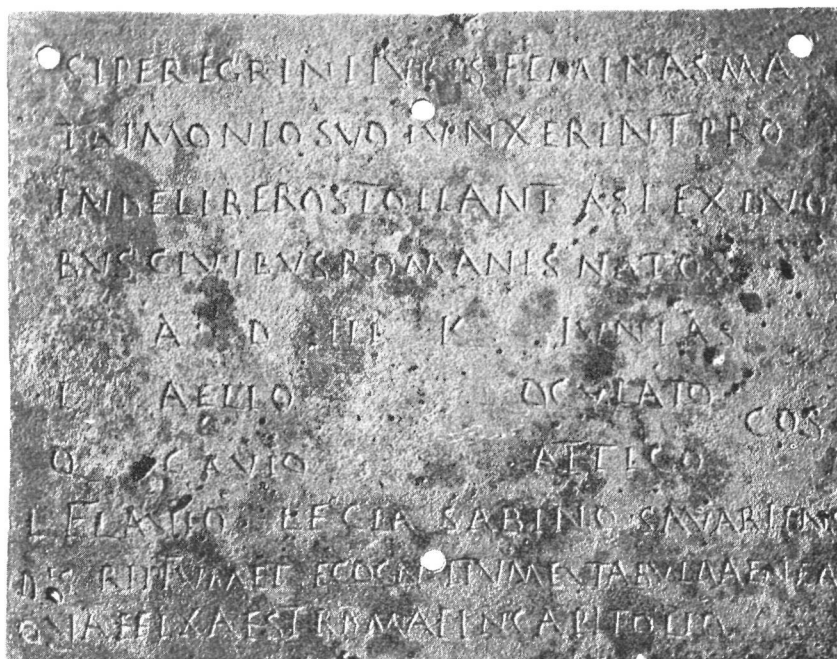 SI PEREGRINI IVRIS FEMINAS MA
TRIMONIO SVO IVNXERINT PRO
INDE LIBEROS TOLLANT ASI EX DVO
BVS CIVIBVS ROMANIS NATOS
A D III K IVNIAS
L AELIO OCVLATO
COS
Q GAVIO ATTICO
L FLAVIO L F CLA SABINO SAVARIENS
ET RECOGNITVM EX TABVLA AENEA
QVAE FIXA EST ROMAE IN CAPITOLIO